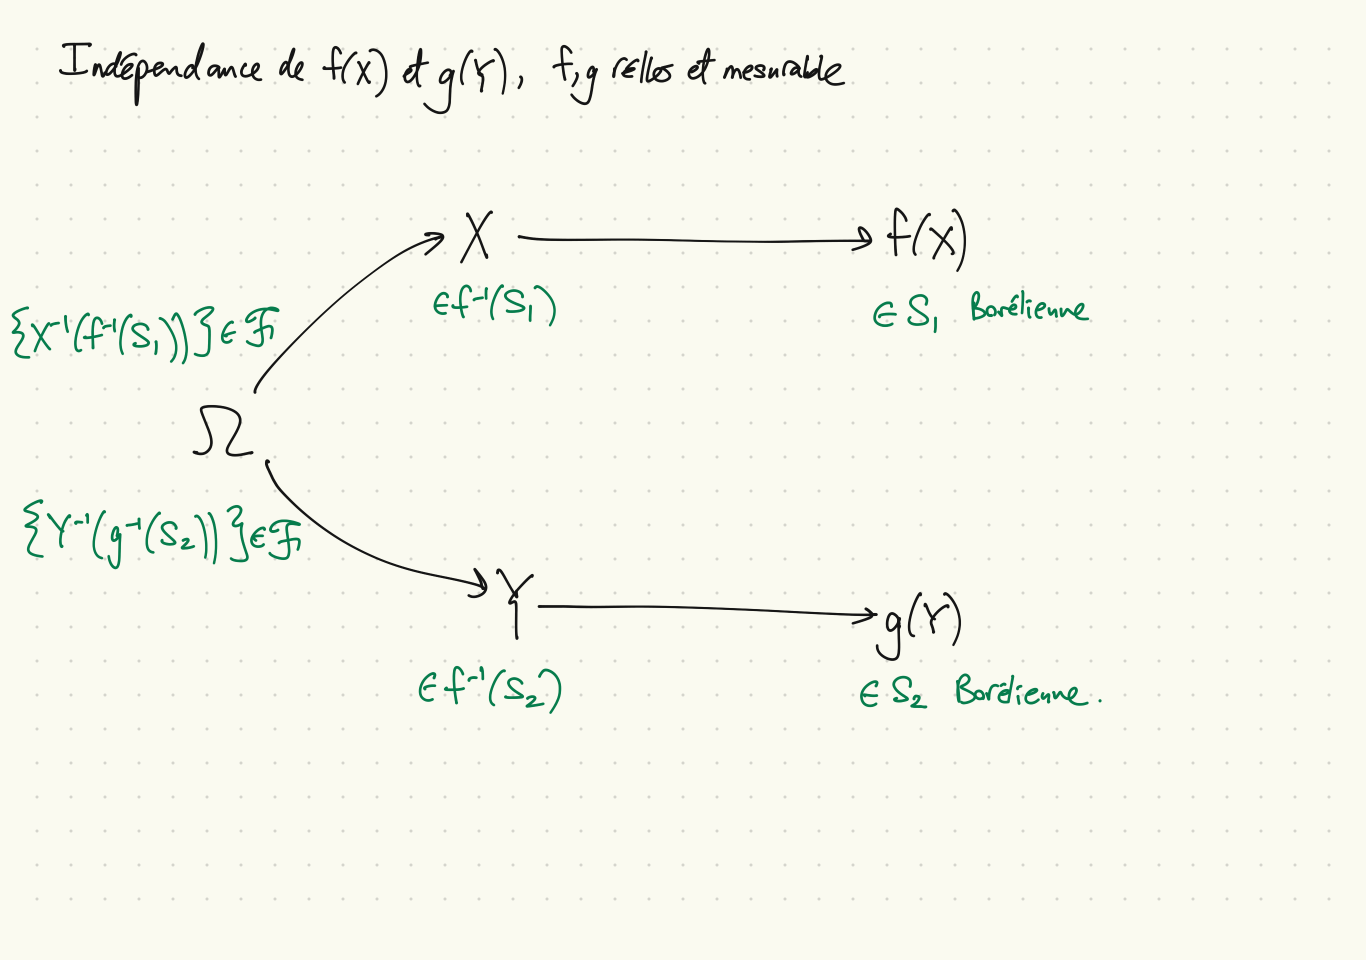 Indépendance de f(X) et g(Y), f,g réelles et mesurable
X
f(X)
∈ f⁻¹(S₁)
∈ S₁ Borélienne
{X⁻¹(f⁻¹(S₁))} ∈ ℱ
Ω
{Y⁻¹(g⁻¹(S₂))} ∈ ℱ
Y
g(Y)
∈ f⁻¹(S₂)
∈ S₂ Borélienne.